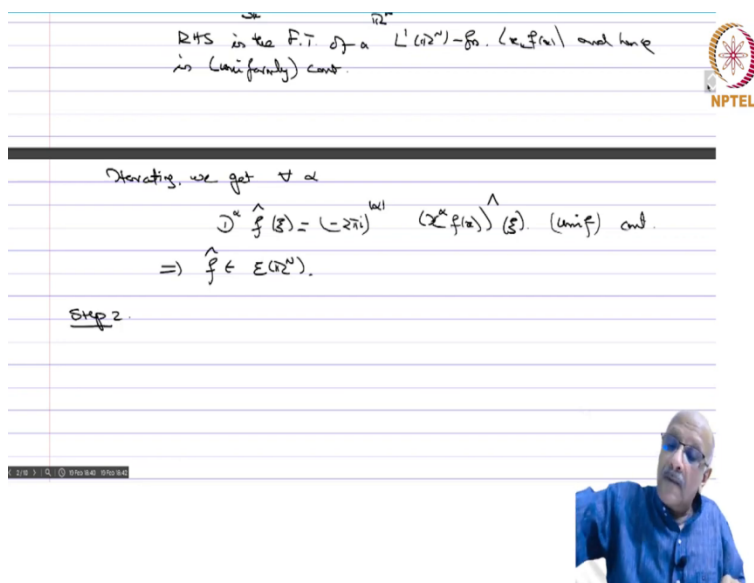 RHS is the F.T. of a L¹(ℝᴺ)-fn. (xₖ f(x)) and hence
is (uniformly) cont.
NPTEL
Iterating, we get ∀ α
D^α f̂(ξ) = (-2πi)^|α| (x^α f(x))^(ξ). (unif) cont.
⇒ f̂ ∈ ℰ(ℝᴺ).
Step 2.